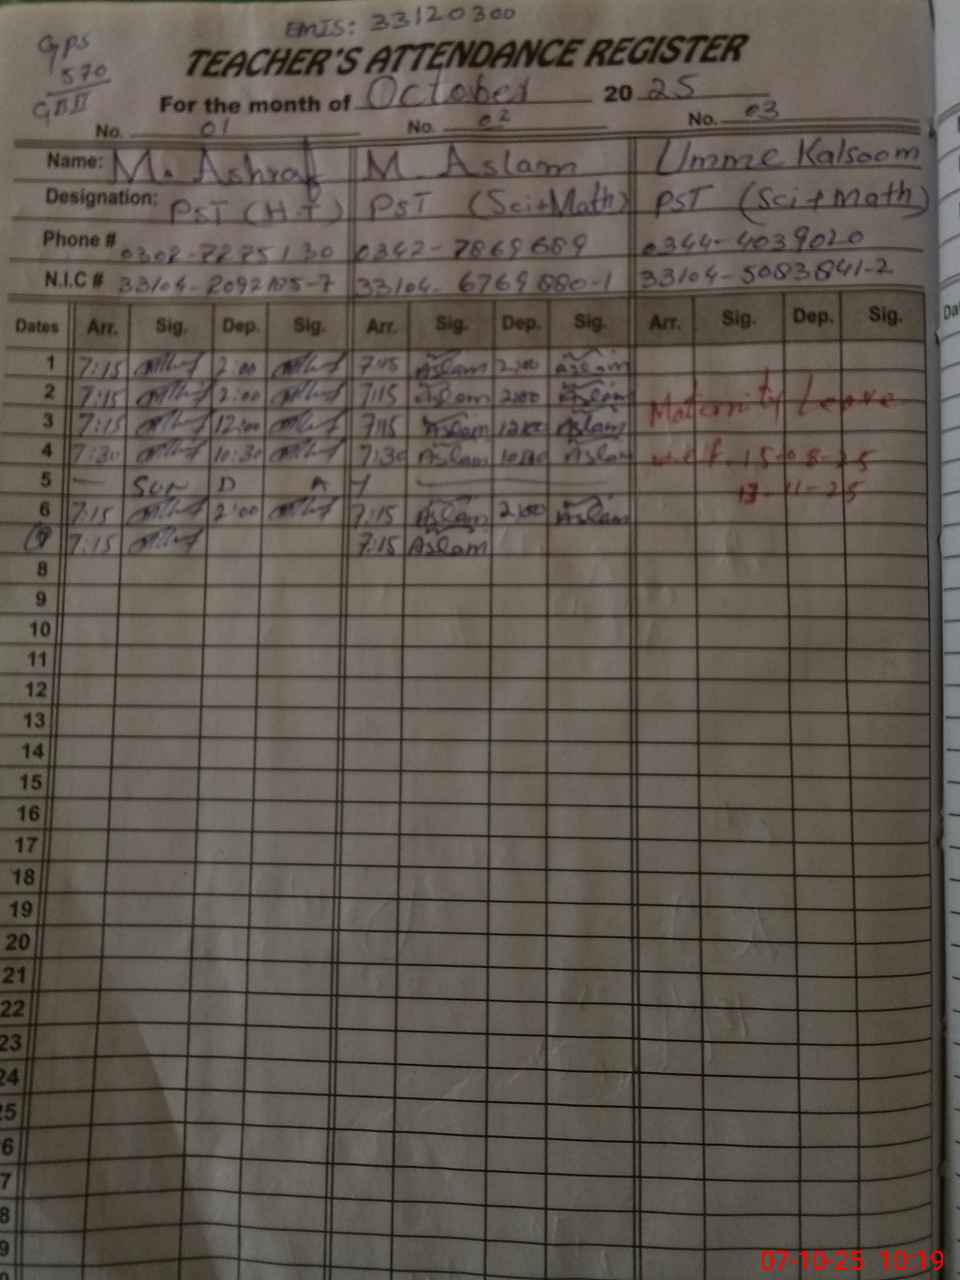 EMIS: 33120300
GPS
570
GBII
TEACHER'S ATTENDANCE REGISTER
For the month of October 2025
No. 01 No. 02 No. 03
Name: M. Ashraf M. Aslam Umme Kalsoom
Designation: PST (H.T) PST (Sci+Math) PST (Sci+Math)
Phone # 0344-4039020
N.I.C # 33104-5083841-2
Dates Arr. Sig. Dep. Sig. Arr. Sig. Dep. Sig. Arr. Sig. Dep. Sig.
1 7:15 2:00 7:15 Aslam 2:00 Aslam
2 7:15 2:00 7:15 Aslam 2:00 Aslam
Maternity Leave
3 7:15 12:00 7:15 Aslam 12:00 Aslam
4 7:30 10:30 7:30 Aslam 10:30 Aslam w.e.f. 15-08-25
5 — SUN D A Y —
13-11-25
6 7:15 2:00 7:15 Aslam 2:00 Aslam
7 7:15 7:15 Aslam
8
9
10
11
12
13
14
15
16
17
18
19
20
21
22
23
24
25
6
7
8
9
07-10-25 10:19